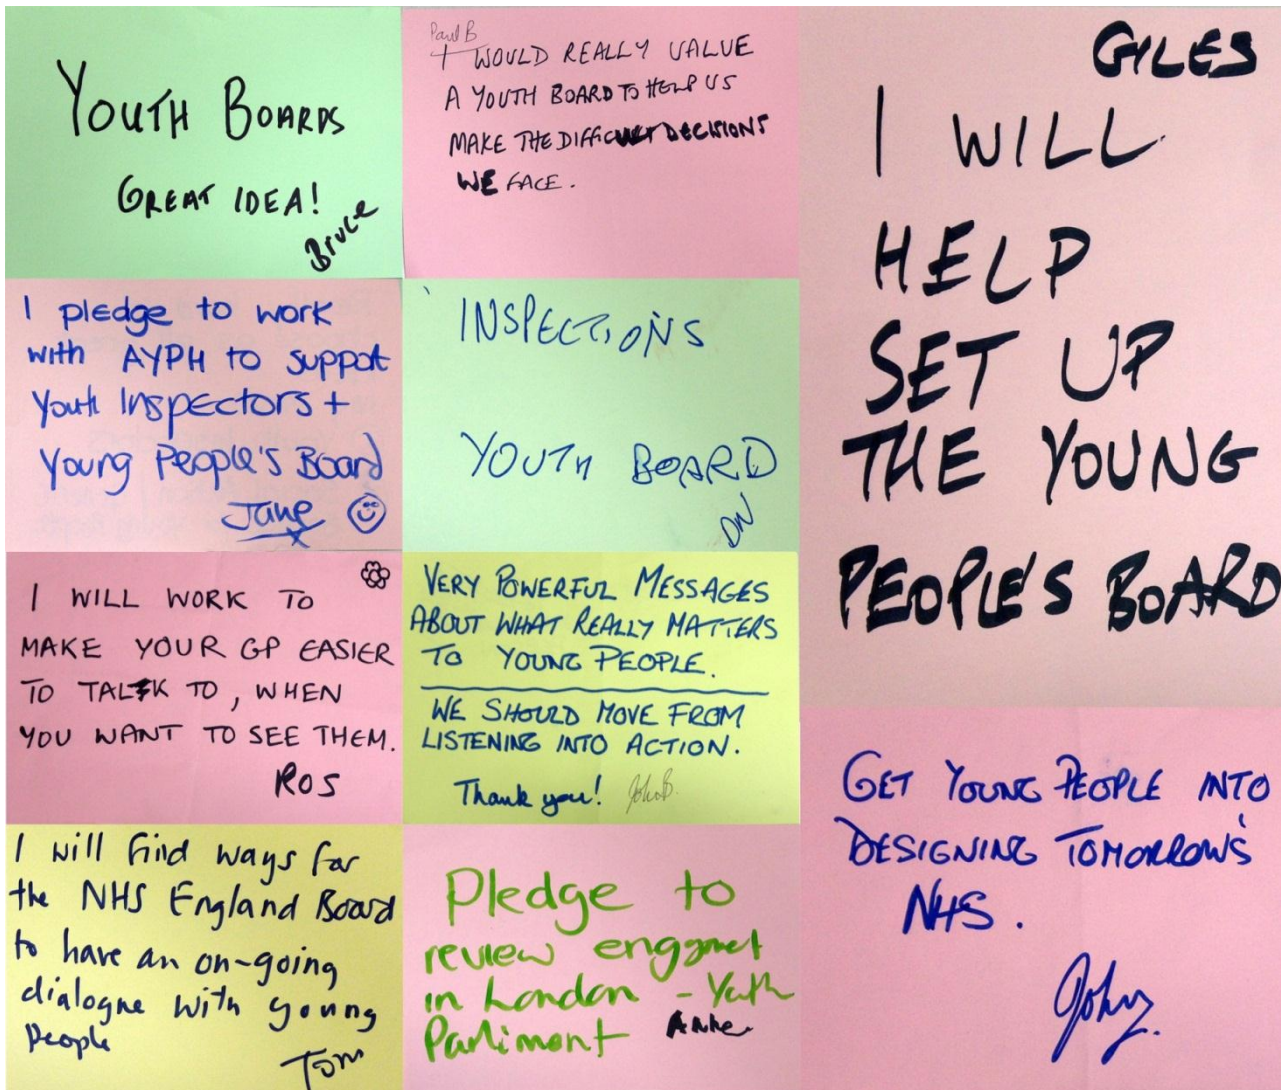 YOUTH BOARDS
GREAT IDEA!
Bruce
Paul B
I WOULD REALLY VALUE
A YOUTH BOARD TO HELP US
MAKE THE DIFFICULT DECISIONS
WE FACE.
GILES
I WILL
HELP
SET UP
THE YOUNG
PEOPLE'S BOARD
I pledge to work
with AYPH to support
Youth Inspectors +
Young People's Board
Jane
INSPECTIONS
YOUTH BOARD
DN
I WILL WORK TO
MAKE YOUR GP EASIER
TO TALK TO, WHEN
YOU WANT TO SEE THEM.
ROS
VERY POWERFUL MESSAGES
ABOUT WHAT REALLY MATTERS
TO YOUNG PEOPLE.
WE SHOULD MOVE FROM
LISTENING INTO ACTION.
Thank you! John B.
GET YOUNG PEOPLE INTO
DESIGNING TOMORROW'S
NHS.
John
I will find ways for
the NHS England Board
to have an on-going
dialogue with young
people
Tom
Pledge to
review
in London - Youth
Parliment